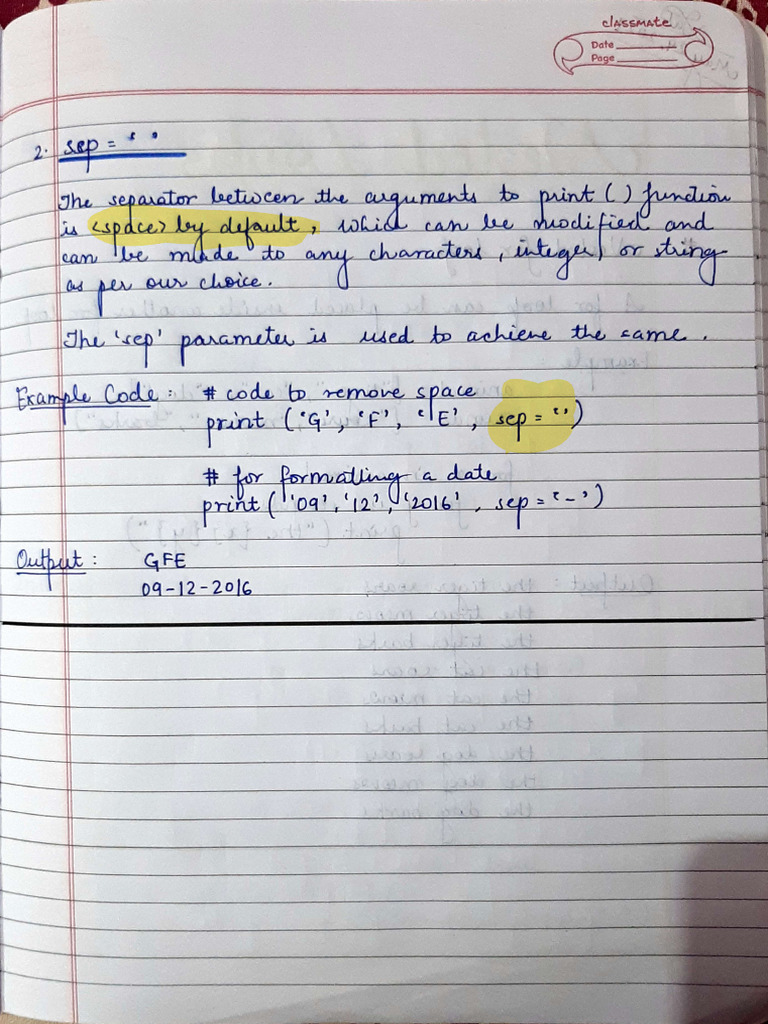 classmate
Date
Page
2. sep = ' '
The separator between the arguments to print ( ) function
is <space> by default, which can be modified and
can be made to any characters, integer, or string
as per our choice.
The 'sep' parameter is used to achieve the same.
Example Code : # code to remove space
print ('G', 'F', 'E', sep = '')
# for formatting a date
print ('09', '12', '2016', sep = '-')
Output : GFE
09-12-2016